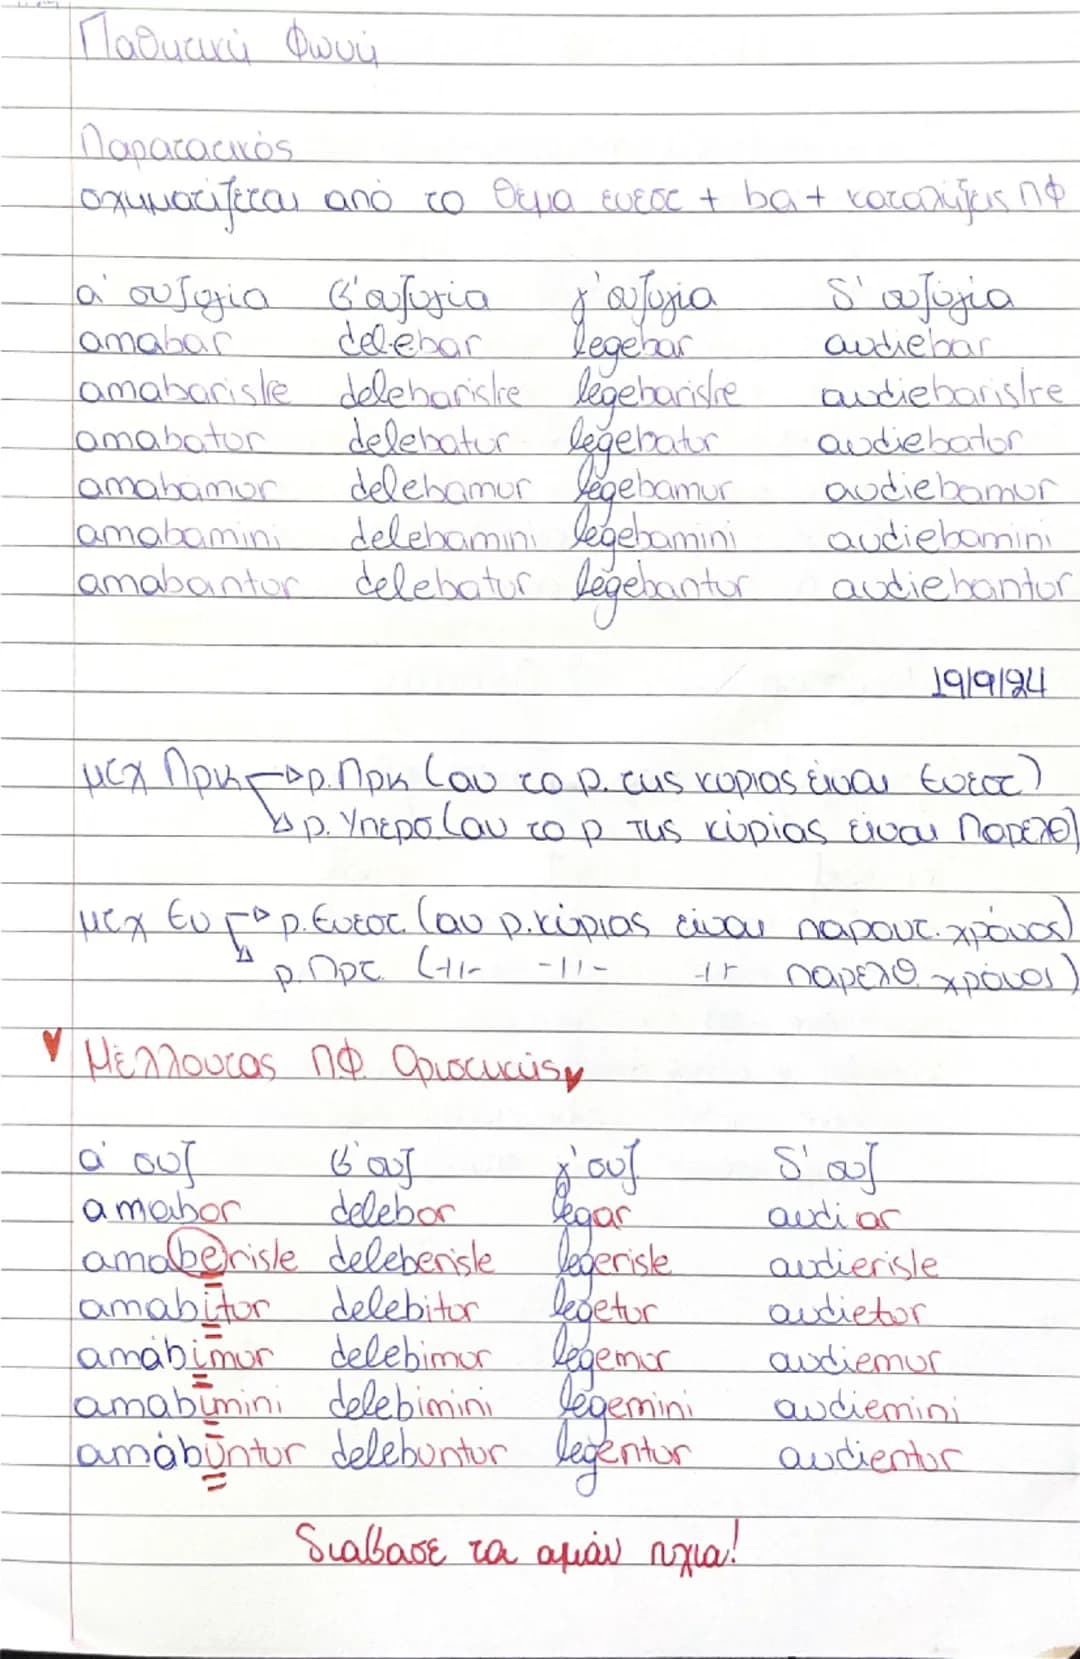 Παθητική Φωνή
Παρατατικός
σχηματίζεται από το θέμα ενεστ + ba + καταλήξεις ΠΦ
α' συζυγία β' συζυγία γ' συζυγία δ' συζυγία
amabar delebar legebar audiebar
amabaris/re delebaris/re legebaris/re audiebaris/re
amabatur delebatur legebatur audiebatur
amabamur delebamur legebamur audiebamur
amabamini delebamini legebamini audiebamini
amabantur delebatur legebantur audiebantur
19/9/24
μτχ Πρκ → ρ. Πρκ (αν το ρ. της κύριας είναι Ενεστ)
→ ρ. Υπερσ (αν το ρ της κύριας είναι Παρελθ)
μτχ Εν → ρ. Ενεστ. (αν ρ. κύριας είναι παροντ. χρόνος)
ρ. Πρτ. (-//- -//- -//- παρελθ. χρόνος)
♥ Μέλλοντας ΠΦ Οριστικής ♥
α' συζ β' συζ γ' συζ δ' συζ
amabor delebor legar audiar
amaberis/e deleberis/e legeris/e audieris/e
amabitur delebitur legetur audietur
amabimur delebimur legemur audiemur
amabimini delebimini legemini audiemini
amabuntur delebuntur legentur audientur
διάβασε τα αμάν